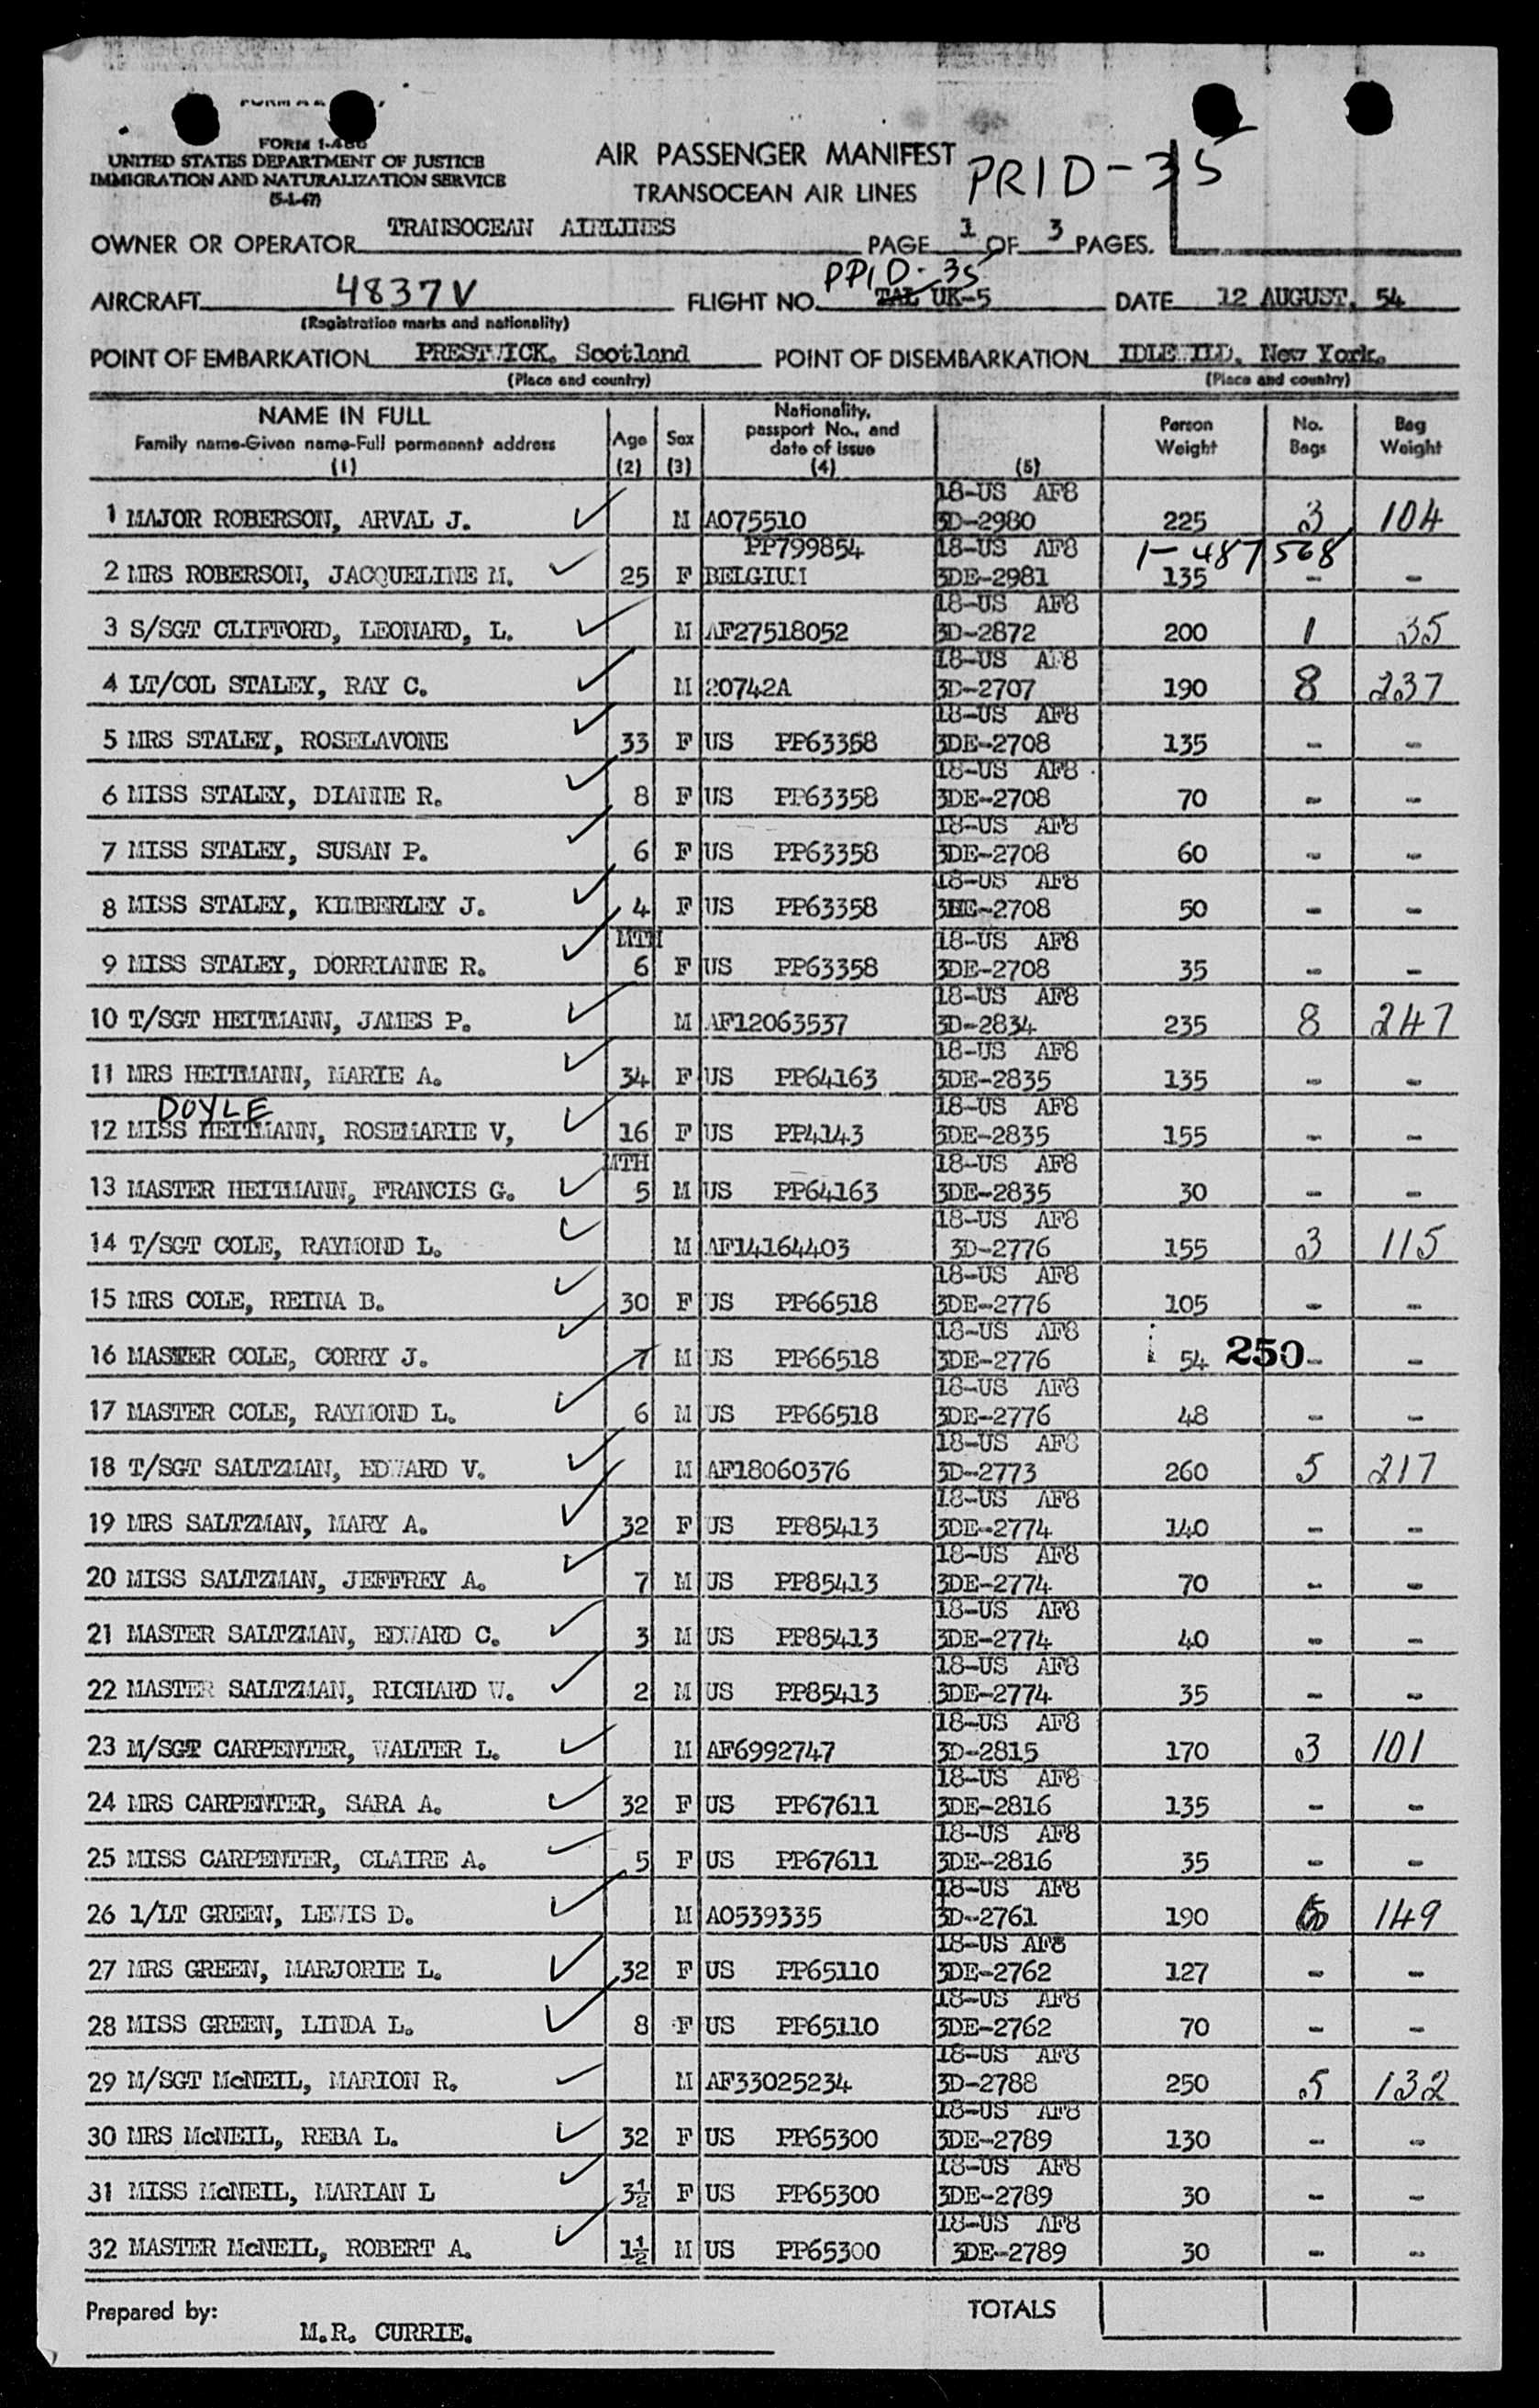 FORM I-466
UNITED STATES DEPARTMENT OF JUSTICE
IMMIGRATION AND NATURALIZATION SERVICE
(5-1-47)
AIR PASSENGER MANIFEST
TRANSOCEAN AIR LINES
PRID-35
OWNER OR OPERATOR TRANSOCEAN AIRLINES PAGE 1 OF 3 PAGES.
PPID-35
AIRCRAFT 4837V FLIGHT NO. TAL UK-5 DATE 12 AUGUST, 54
(Registration marks and nationality)
POINT OF EMBARKATION PRESTWICK, Scotland POINT OF DISEMBARKATION IDLEWILD, New York.
(Place and country) (Place and country)
NAME IN FULL
Family name-Given name-Full permanent address
(1)
Age
(2)
Sex
(3)
Nationality,
passport No., and
date of issue
(4)
(5)
Person
Weight
No.
Bags
Bag
Weight
18-US AF8
1 MAJOR ROBERSON, ARVAL J. M AO75510 3D-2980 225 3 104
PP799854 18-US AF8 1-487568
2 MRS ROBERSON, JACQUELINE M. 25 F BELGIUM 3DE-2981 135 - -
18-US AF8
3 S/SGT CLIFFORD, LEONARD, L. M AF27518052 3D-2872 200 1 35
18-US AF8
4 LT/COL STALEY, RAY C. M 20742A 3D-2707 190 8 237
18-US AF8
5 MRS STALEY, ROSELAVONE 33 F US PP63358 3DE-2708 135 - -
18-US AF8
6 MISS STALEY, DIANNE R. 8 F US PP63358 3DE-2708 70 - -
18-US AF8
7 MISS STALEY, SUSAN P. 6 F US PP63358 3DE-2708 60 - -
18-US AF8
8 MISS STALEY, KIMBERLEY J. 4 F US PP63358 3DE-2708 50 - -
MTH 18-US AF8
9 MISS STALEY, DORRIANNE R. 6 F US PP63358 3DE-2708 35 - -
18-US AF8
10 T/SGT HEITMANN, JAMES P. M AF12063537 3D-2834 235 8 247
18-US AF8
11 MRS HEITMANN, MARIE A. 34 F US PP64163 3DE-2835 135 - -
DOYLE 18-US AF8
12 MISS HEITMANN, ROSEMARIE V, 16 F US PP4143 3DE-2835 155 - -
MTH 18-US AF8
13 MASTER HEITMANN, FRANCIS G. 5 M US PP64163 3DE-2835 30 - -
18-US AF8
14 T/SGT COLE, RAYMOND L. M AF14164403 3D-2776 155 3 115
18-US AF8
15 MRS COLE, REINA B. 30 F US PP66518 3DE-2776 105 - -
18-US AF8
16 MASTER COLE, CORRY J. 7 M US PP66518 3DE-2776 54 250 - -
18-US AF8
17 MASTER COLE, RAYMOND L. 6 M US PP66518 3DE-2776 48 - -
18-US AF8
18 T/SGT SALTZMAN, EDWARD V. M AF18060376 3D-2773 260 5 217
18-US AF8
19 MRS SALTZMAN, MARY A. 32 F US PP85413 3DE-2774 140 - -
18-US AF8
20 MISS SALTZMAN, JEFFREY A. 7 M US PP85413 3DE-2774 70 - -
18-US AF8
21 MASTER SALTZMAN, EDWARD C. 3 M US PP85413 3DE-2774 40 - -
18-US AF8
22 MASTER SALTZMAN, RICHARD W. 2 M US PP85413 3DE-2774 35 - -
18-US AF8
23 M/SGT CARPENTER, WALTER L. M AF6992747 3D-2815 170 3 101
18-US AF8
24 MRS CARPENTER, SARA A. 32 F US PP67611 3DE-2816 135 - -
18-US AF8
25 MISS CARPENTER, CLAIRE A. 5 F US PP67611 3DE-2816 35 - -
18-US AF8
26 1/LT GREEN, LEWIS D. M AO539335 3D-2761 190 149
18-US AF8
27 MRS GREEN, MARJORIE L. 32 F US PP65110 3DE-2762 127 - -
18-US AF8
28 MISS GREEN, LINDA L. 8 F US PP65110 3DE-2762 70 - -
18-US AF8
29 M/SGT McNEIL, MARION R. M AF33025234 3D-2788 250 5 132
18-US AF8
30 MRS McNEIL, REBA L. 32 F US PP65300 3DE-2789 130 - -
18-US AF8
31 MISS McNEIL, MARIAN L 3½ F US PP65300 3DE-2789 30 - -
18-US AF8
32 MASTER McNEIL, ROBERT A. 1½ M US PP65300 3DE-2789 30 - -
Prepared by: TOTALS
M.R. CURRIE.